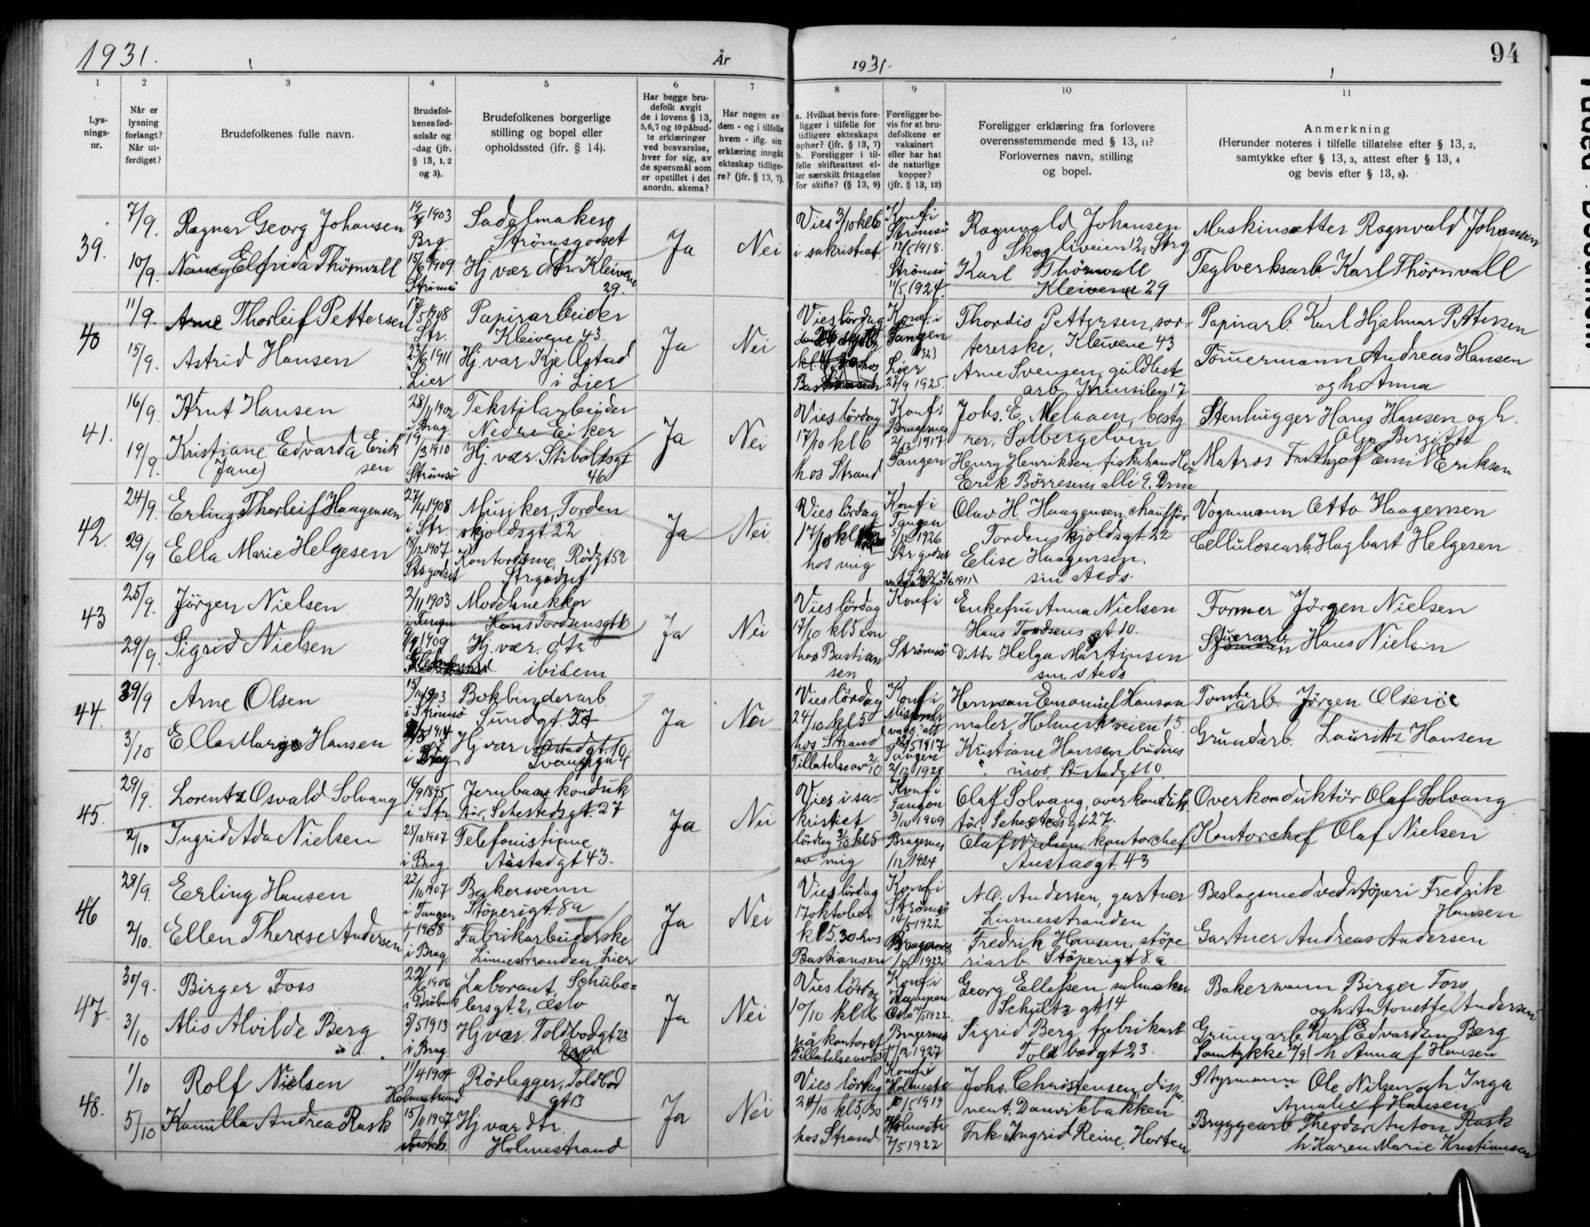 1931.
År
1931.
94
1
2
3
4
5
6
7
8
9
10
11
Lys-
nings-
nr.
Når er
lysning
forlangt?
Når ut-
ferdiget?
Brudefolkenes fulle navn.
Brudefol-
kenes fød-
selsår og
-dag (jfr.
§ 13, 1, 2
og 3).
Brudefolkenes borgerlige
stilling og bopel eller
opholdssted (ifr. § 14).
Har begge bru-
defolk avgit
de i lovens § 13,
5,6,7 og 10 påbud-
te erklæringer
ved besvarelse,
hver for sig, av
de spørsmål som
er opstillet i det
anordn. skema?
Har nogen av
dem - og i tilfelle
hvem - iflg. sin
erklæring inngåt
ekteskap tidlige-
re? (jfr. § 13, 7).
a. Hvilket bevis fore-
ligger i tilfelle for
tidligere ekteskaps
ophør? (jfr. § 13, 7)
b. Foreligger i til-
felle skifteattest el-
ler særskilt fritagelse
for skifte? (§ 13, 9)
Foreligger be-
vis for at bru-
defolkene er
vaksinert
eller har hat
de naturlige
kopper?
(jfr. § 13, 12)
Foreligger erklæring fra forlovere
overensstemmende med § 13, 11?
Forlovernes navn, stilling
og bopel.
Anmerkning
(Herunder noteres i tilfelle tillatelse efter § 13, 2,
samtykke efter § 13, 3, attest efter § 13, 4
og bevis efter § 13, 8).
39.
7/9. Ragnar Georg Johansen
1903
Brg.
Sadelmaker
Strömsgodset
10/9. Nancy Elfrida Thörnvall
15/6 1909
Strömsö
Hj vær dtr Kleivene
29.
Ja
Nei
Vies 3/10 kl 6
i sakristiet
Konf i
Strömsö
1918.
Strömsö
11/5 1924.
Ragnvald Johansen
Skogliveien 12, Strg
Karl Thörnvall
Kleivene 29
Maskinsetter Ragnvald Johansen
Teglverksarb Karl Thörnvall
40
11/9. Arne Thorleif Pettersen
Str.
Papirarbeider
Kleivene 43
15/9. Astrid Hansen
1911
Lier
Hj var
i Lier
Ja
Nei
Vies lördag
Konf i
Tangen
Lier
27/9 1925.
Thordis Pettersen, sor-
tererske, Kleivene 43
Arne Svensen, guldlist
arb,
Papirarb Karl Hjalmar Pettersen
Tömermann Andreas Hansen
og h. Anna
41.
16/9 Knut Hansen
28/11 1902
i Brag.
Tekstilarbeider
Nedre Eiker
19/9. Kristiane Edvarda Erik
(Jane) sen
1910
Strömsö
Hj. vær. Stiboltsgt
46
Ja
Nei
Vies lördag
17/10 kl 6
hos Strand
Konf i
Bragernes
1917
Tangen
Johs. E. Melaaen, besty
rer, Solbergelven
Henry Henriksen fiskehandler
Erik Börresens alle 9. Drm
Stenhugger Hans Hansen og h.
Olga Bergitte
Matros Frithjof Emil Eriksen
42.
24/9. Erling Thorleif Haagensen
27/4 1908
i Str.
Musiker, Torden
skjoldsgt 22
29/9 Ella Marie Helgesen
1907
Strgodset
Kontordame, Rödgt 52
Strgodset
Ja
Nei.
Vies lördag
17/10 kl
hos mig
Konf i
Tangen
1926
Strgodset
Olav H. Haagensen, chauffør
Tordenskjoldsgt 22
Elise Haagensen
sm steds.
Vognmann Otto Haagensen
Cellulosearb Hagbart Helgesen
43
25/9. Jörgen Nielsen
2/11 1903
Modelsnekker
Hans Tordsensgt 10
29/9. Sigrid Nielsen
1909
Hj. vær. dtr
ibidem
Ja
Nei
Vies lördag
17/10 kl 5 em
hos Bastian
sen
Konf i
Strömsö
Enkefru Anna Nielsen
Hans Tordsens gt 10.
Ditto Helga Martinsen
sm steds
Former Jörgen Nielsen
Stuerarb. Hans Nielsen
44.
29/9 Arne Olsen
1903
i Strömsö
Bokbinderarb
Sundgt 37
3/10 Ella Marie Hansen
i Brag
Hj vær Austadgt. 10
Ja
Nei
Vies lördag
24/10 kl 5
hos Strand
Tillatelse av 2/10
Konf i
1917
Tangen
2/12 1928
Herman Emanuel Hanson
maler, Holmerkveien 15.
Kristiane Hansen brudens
mor, Austadgt 10
Tomtearb. Jörgen Olsen
Grundarb. Lauritz Hansen
45.
29/9. Lorentz Osvald Solvang
16/9 1895
i Str.
Jernbanekonduk
tör, Sehestedsgt. 27
2/10 Ingrid Ada Nielsen
25/10 1907
i Brag
Telefonistinne
Austadgt 43-
Ja
Nei
Vies i sa-
kristiet
lördag 3/10 kl 5
av mig
Konf i
Tangen
3/10 1909
Bragernes
1924
Olaf Solvang, overkonduk
tör, Sehestedsgt 27.
Olaf Nielsen, kontorchef
Austadgt 43
Overkonduktör Olaf Solvang
Kontorchef Olaf Nielsen
46
29/9. Erling Hansen
22/10 1907
i Tangen
Bakersvenn
Stöperigt 8a
2/10. Ellen Therese Andersen
1908
i Brag
Fabrikarbeiderske
Linnesstranden Lier
Ja
Nei
Vies lördag
17 oktober
kl 5.30 hos
Bastiansen
Konf i
Strömsö
1922
Bragernes
1922
A. C. Andersen, gartner
Linnesstranden
Fredrik Hansen, støpe
riarb. Stöperigt 8a.
Beslagsmed ved støperi Fredrik
Hansen
Gartner Andreas Andersen
47.
30/9. Birger Foss
1906
i Dröbak
Laborant, Schübe-
lersgt 2, Oslo
3/10 Alis Alvilde Berg
5/5 1913
i Brag
Hj vær. Toldbodgt 23
Drmn
Ja
Nei
Vies lördag
10/10 kl 6
på kontoret
Tillatelse av
Konf i
Oslo
Bragernes
1927
Georg Ellefsen, salmaker
Schultz gt 14
Sigrid Berg, fabrikarb
Toldbodgt 23.
Bakermann Birger Foss
og h. Antonette Andersen
Grünarb. Karl Edvardsen Berg
Samtykke 30/9 h Anna f Hansen
48.
1/10 Rolf Nielsen
11/4 1904
Holmestrand
Rörlegger, Toldbod
gt 13
5/10 Kamilla Andrea Rask
15/11 1902
Hj vær dtr.
Holmestrand
Ja
Nei
Vies lördag
24/10 kl 5,30
hos Strand
Konf i
Holmestr
1919
Holmestr
7/5 1922
Johs. Christensen, dispo
nent, Danvikbakken
Frk Ingrid Reine, Horten
Styrmann Ole Nilsen og h Inga
Amalie f Hansen
Bryggearb Theodor Anton Rask
h. Karen Marie Kristiansen